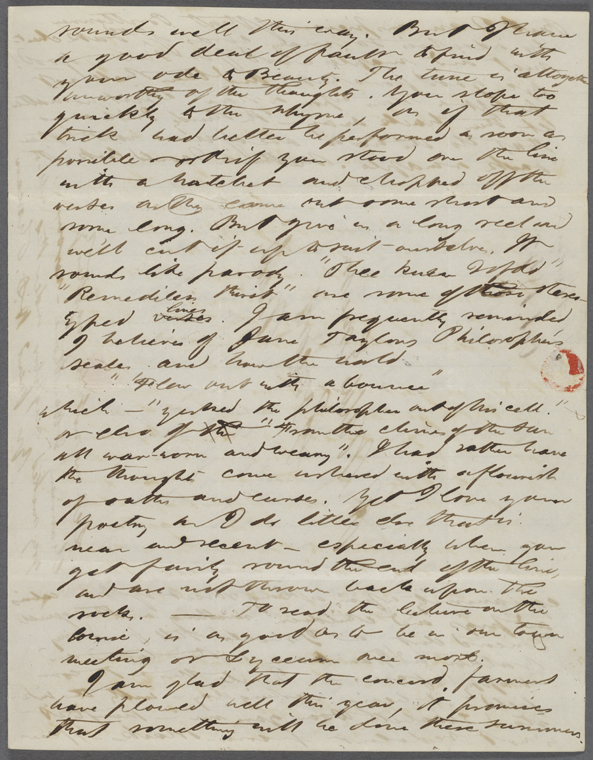 sounds well this way. But I have
a good deal of fault to find with
your ode to Beauty. The tune is altogether
unworthy of the thoughts. You slope too
quickly to the rhyme, as if that
trick had better be performed as soon as
possible or as if you stood over the line
with a hatchet and chopped off the
verses as they came out some short and
some long. But give us a long reel and
we'll cut it up to suit ourselves. It
sounds like parody. "Thee knew I of old"
"Remediless thirst" are some of those stereo-
typed lines verses. I am frequently reminded
I believe of Jane Taylors Philosopher's
scales and how the world
"Flew out with a bounce"
which — "yerked the philosopher out of his cell."
or else of the "From the climes of the sun
all war-worn and weary". I had rather have
the thought come ushered with a flourish
of oaths and curses. Yet I love your
poetry as I do little else that is
near and recent — especially when you
get fairly round the end of the line,
and are not thrown back upon the
rocks. — To read the lecture on the
Comic, is as good as to be in our town
meeting or Lyceum once more.
I am glad that the concord farmers
have plowed well this year, it promises
that something will be done these summers.